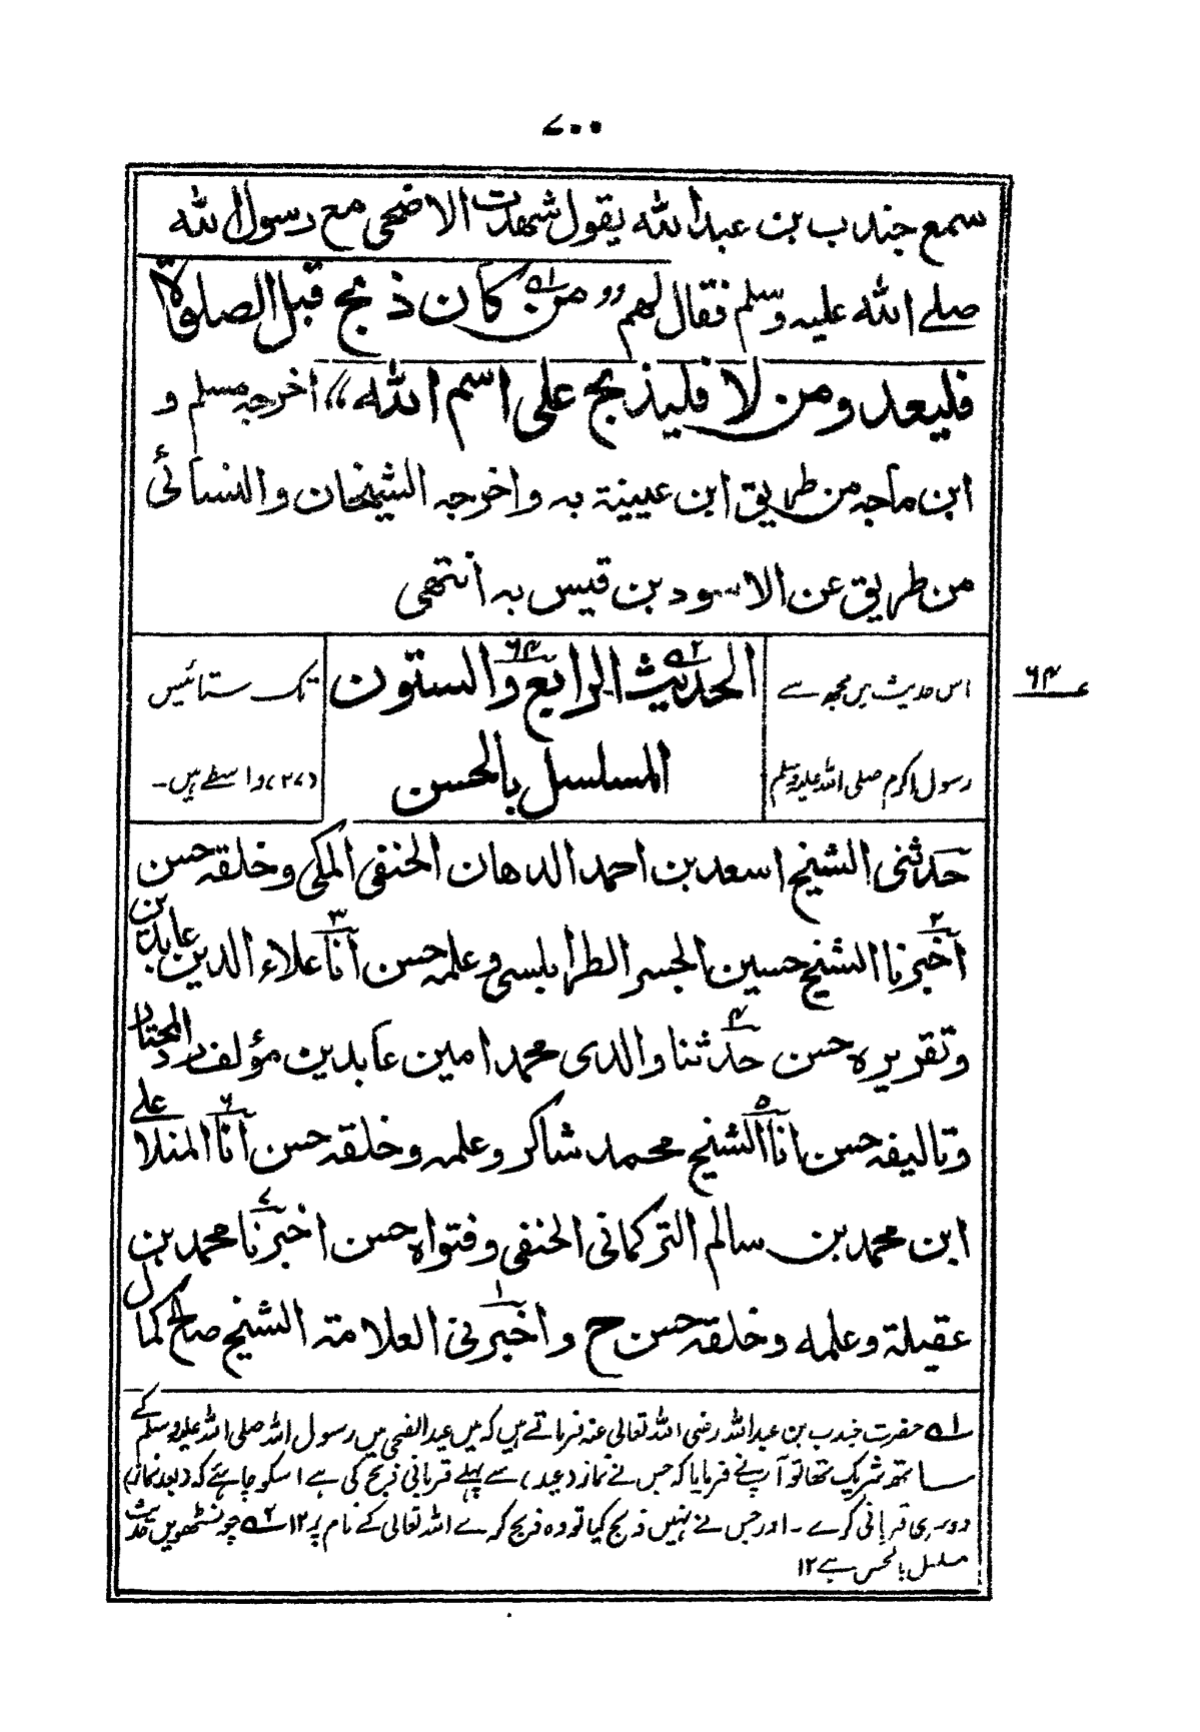 ۷۰۰
سمع جندب بن عبدالله يقول شهدت الاضحى مع رسول الله
صلے الله عليه وسلم فقال لهم ”من كان ذبح قبل الصلوة
فليعد ومن لا فليذبح على اسم الله“ اخرجه مسلم و
ابن ماجه من طريق ابن عيينة به واخرجه الشيخان والنسائي
من طريق عن الاسود بن قيس به انتهى
۶۴
اس حدیث میں مجھ سے
رسول اکرم صلی اللہ علیہ وسلم
الحديث الرابع والستون
المسلسل بالحسن
تک ستائیس
(۲۷) واسطے ہیں۔
حدثنى الشيخ اسعد بن احمد الدهان الحنفي المكي وخلقه حسن
اخبرنا الشيخ حسين الجسر الطرابلسى وعلمه حسن انا علاء الدين بن عابدين
وتقريره حسن حدثنا والدى محمد امين عابدين مؤلف رد المحتار
وتاليفه حسن انا الشيخ محمد شاكر وعلمه وخلقه حسن انا المنلا على
ابن محمد بن سالم التركمانى الحنفي وفتواه حسن اخبرنا محمد بن
عقيلة وعلمه وخلقه حسن ح واخبرنى العلامة الشيخ صالح كمال
۱ے حضرت جندب بن عبداللہ رضی اللہ تعالی عنہ فرماتے ہیں کہ میں عیدالضحی میں رسول اللہ صلی اللہ علیہ وسلم کے
ساتھ شریک تھا تو آپ نے فرمایا کہ جس نے نماز (عید) سے پہلے قربانی ذبح کی ہے اسکو چاہئے کہ (بعد نماز)
دوسری قربانی کرے ۔ اور جس نے نہیں ذبح کیا تو وہ ذبح کرے اللہ تعالی کے نام پر ۱۲ ۲ے چونسٹھویں حدیث
مسلسل بالحسن ہے ۱۲